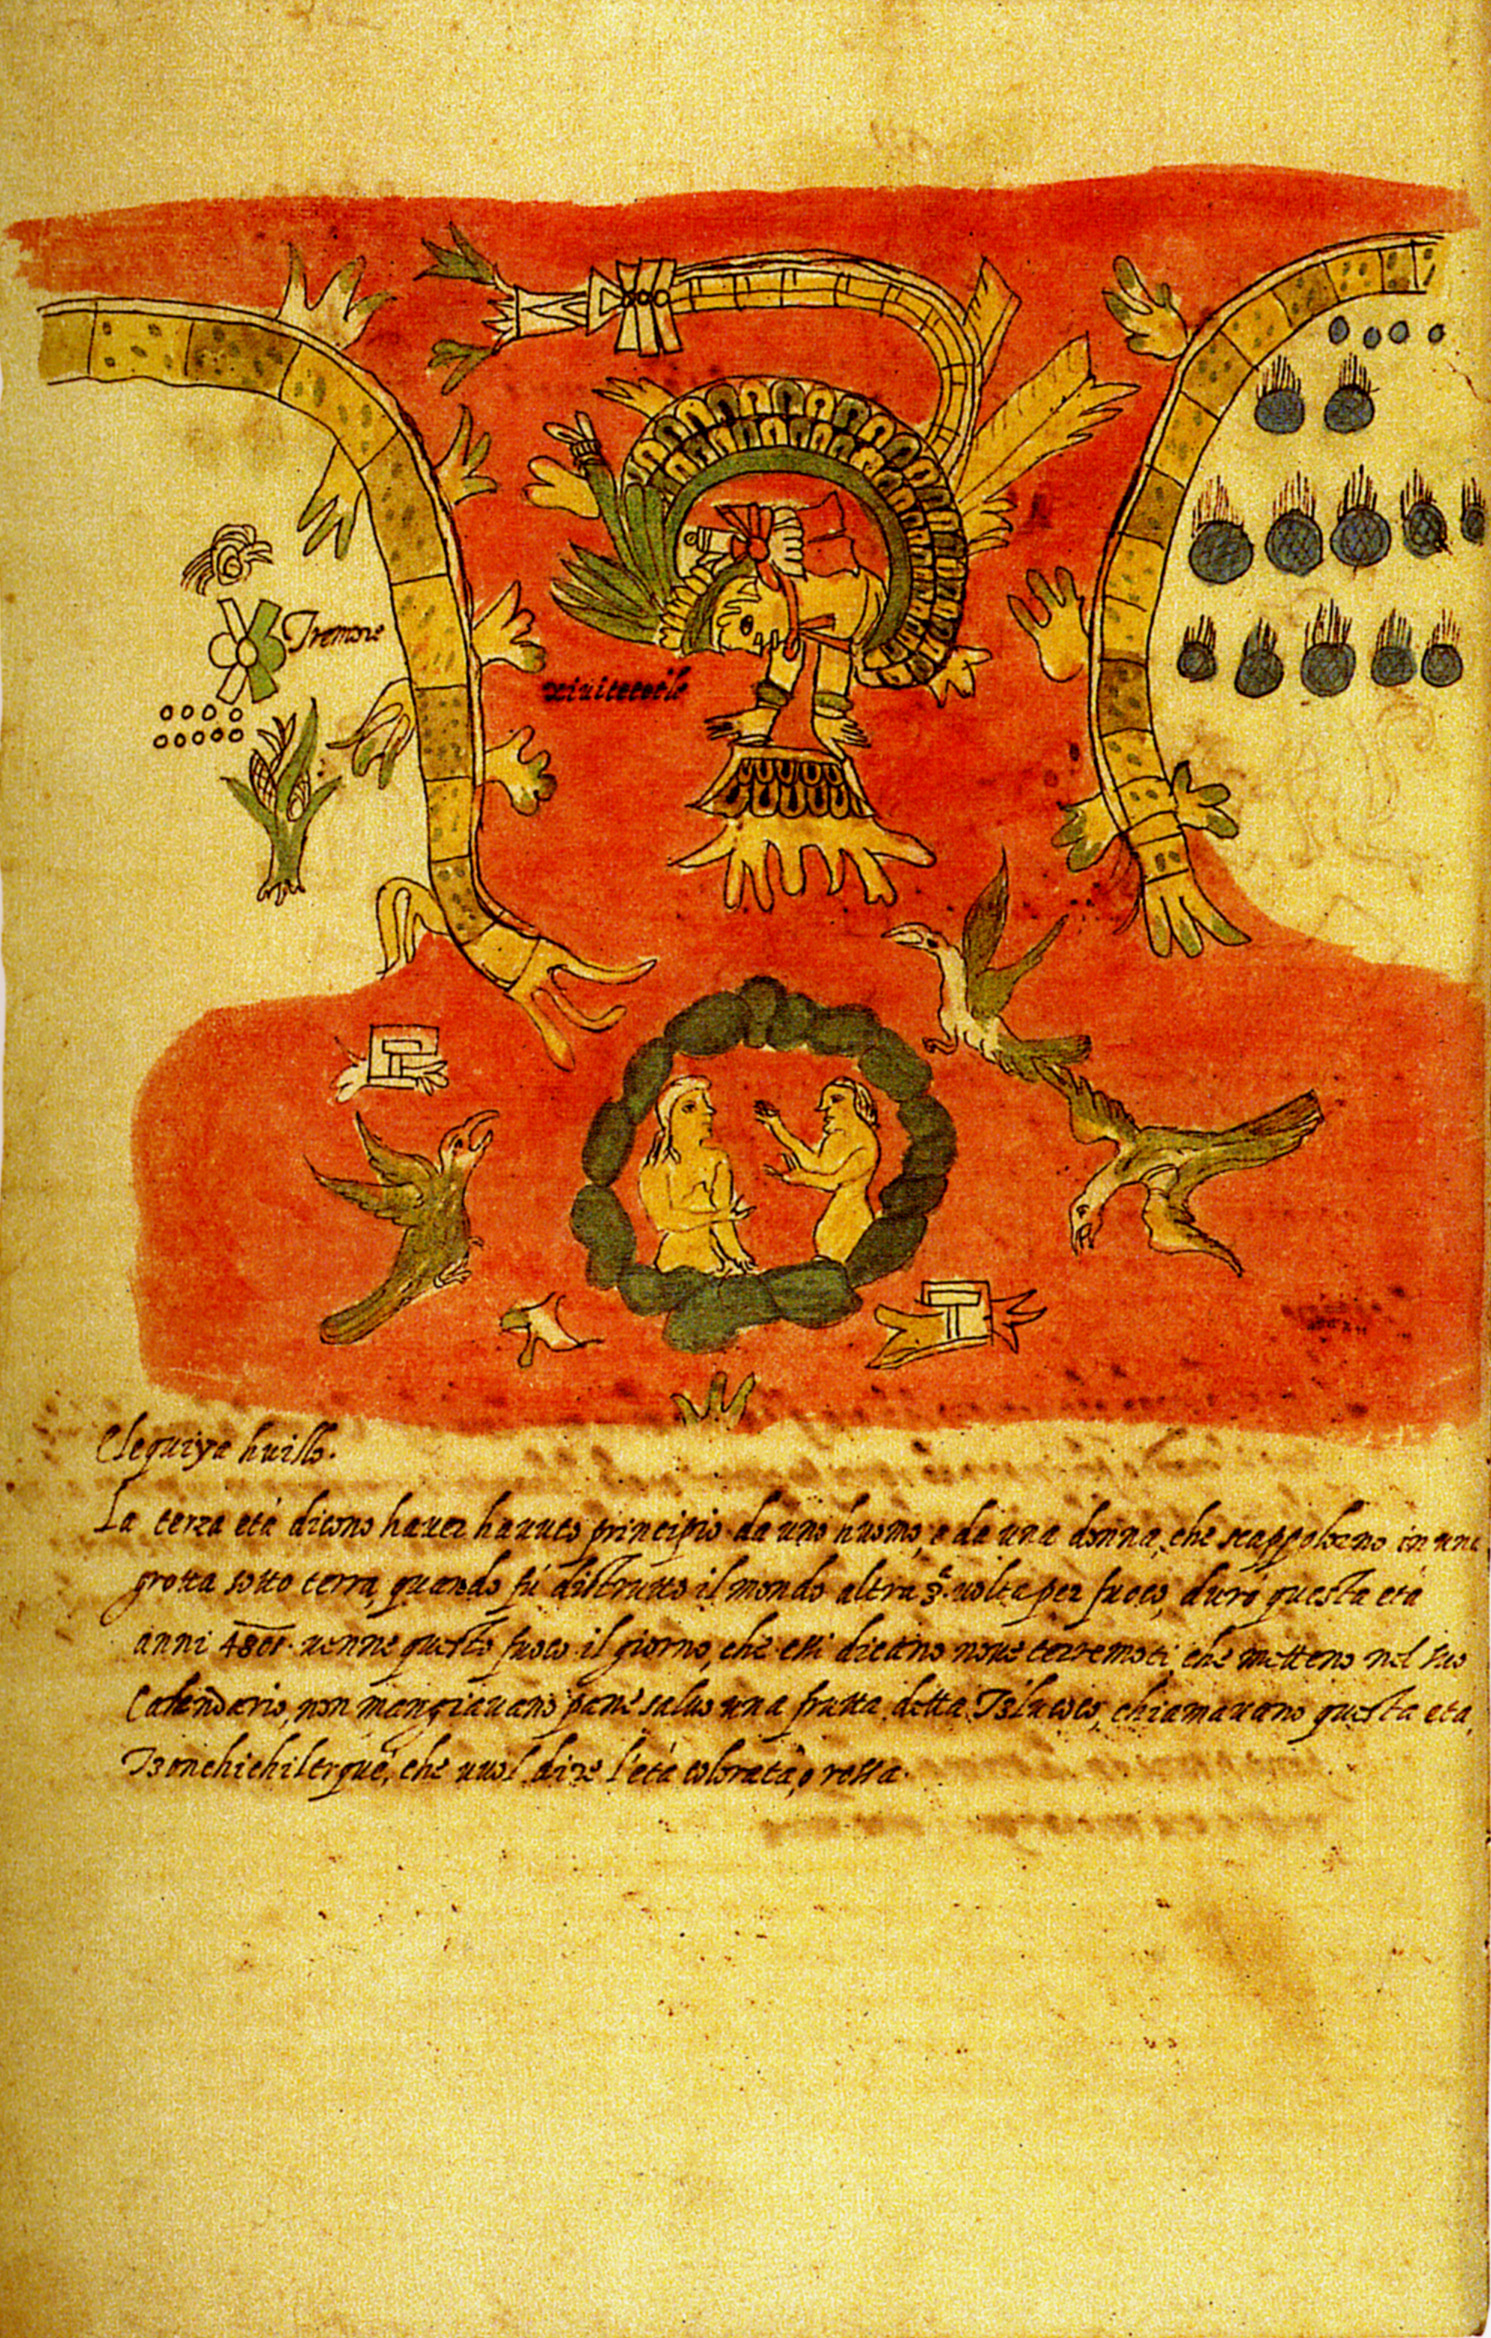 Tremore
xiuitecotle
Clequiyahuillo.
La terza età dicono haver havuto principio da uno huomo, e da una donna, che scappolorno in una
grotta sotto terra, quando fú distrutto il mondo altra volta per fuoco, duró questa età
anni 4801. venne questo fuoco il giorno, che essi dicano nove terremoti che metteno nel suo
Calendario, non mangiavano pane salvo una frutta detta Tzlucoco, chiamavano questa eta
Tzonchichilteque, che vuol dire l'età colorata, o rossa.